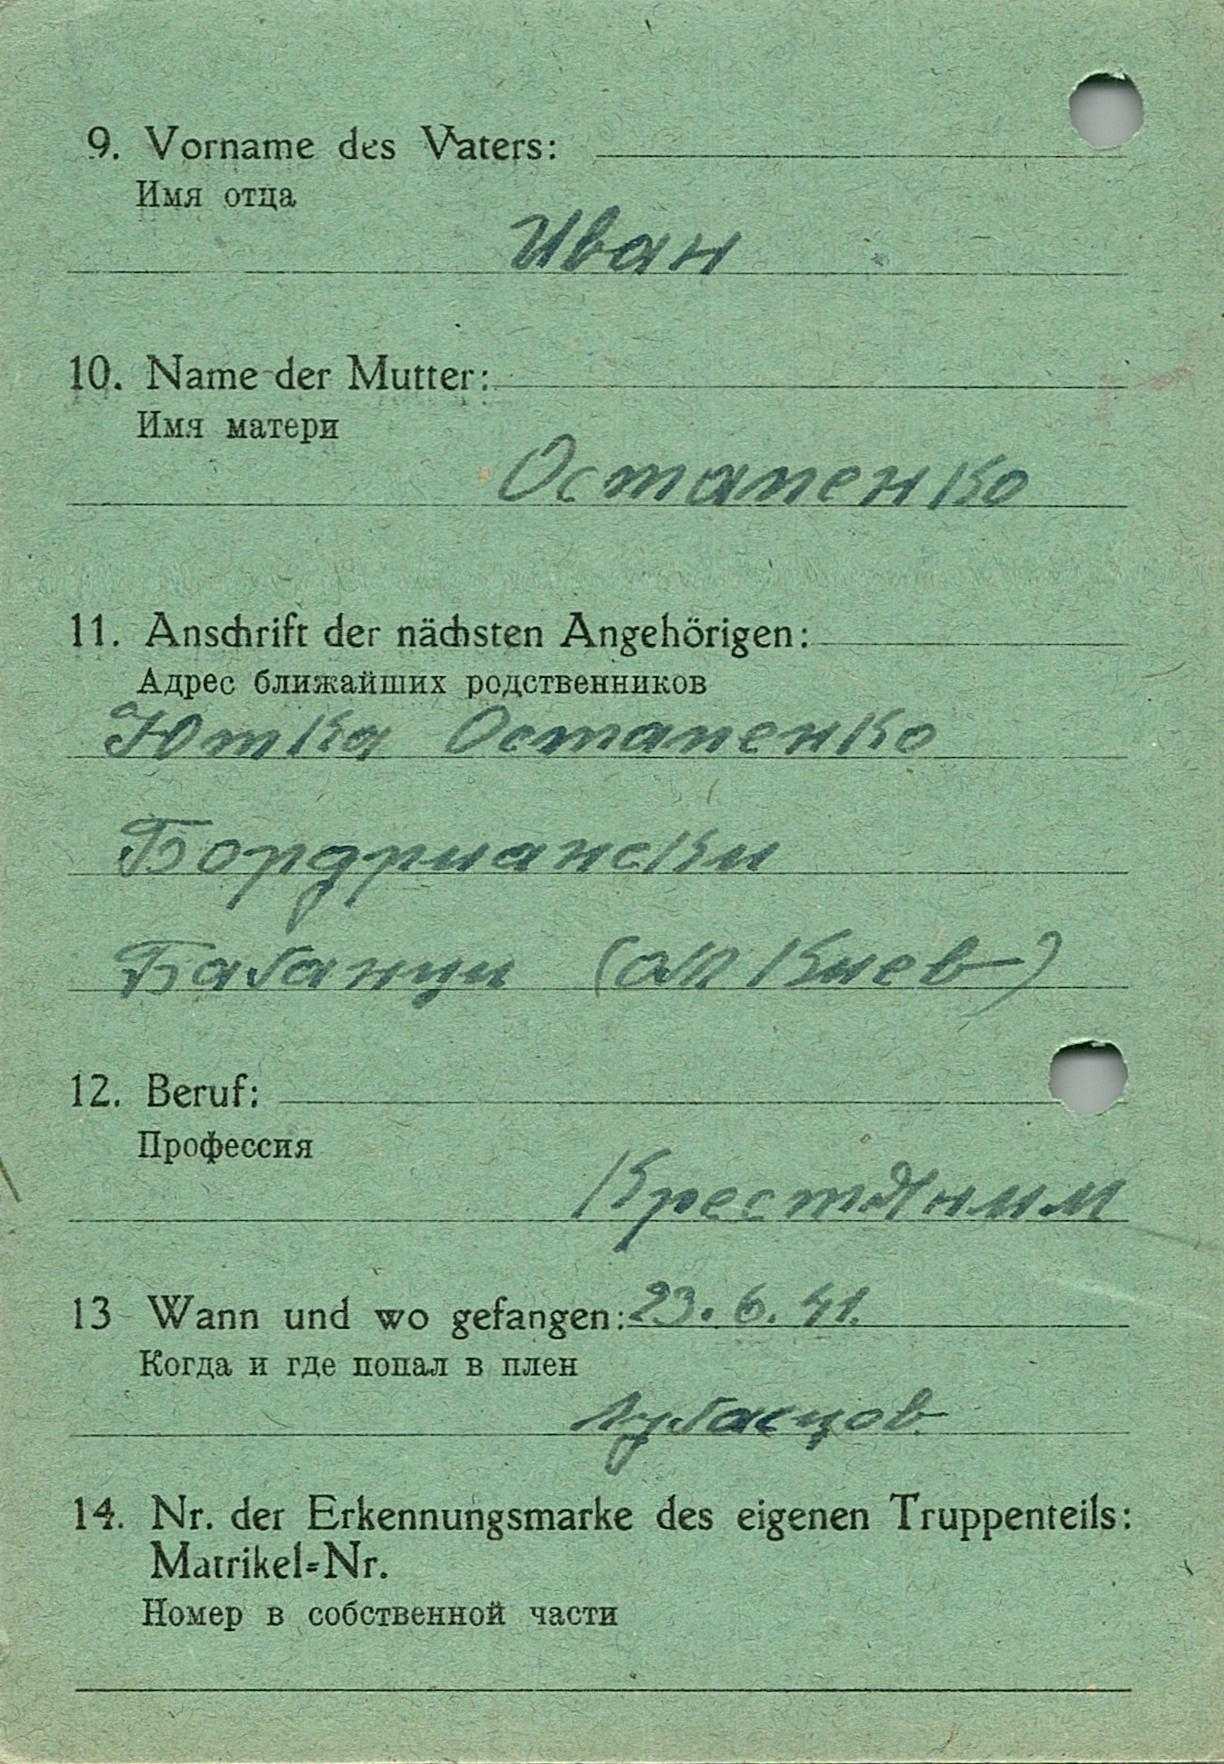 9. Vorname des Vaters:
Имя отца
Иван
10. Name der Mutter:
Имя матери
Остапенко
11. Anschrift der nächsten Angehörigen:
Адрес ближайших родственников
Ютка Остапенко
Бордриански
Бабанци (обл Киев)
12. Beruf:
Профессия
Крестяним
13 Wann und wo gefangen: 23.6.41.
Когда и где попал в плен
14. Nr. der Erkennungsmarke des eigenen Truppenteils:
Matrikel-Nr.
Номер в собственной части